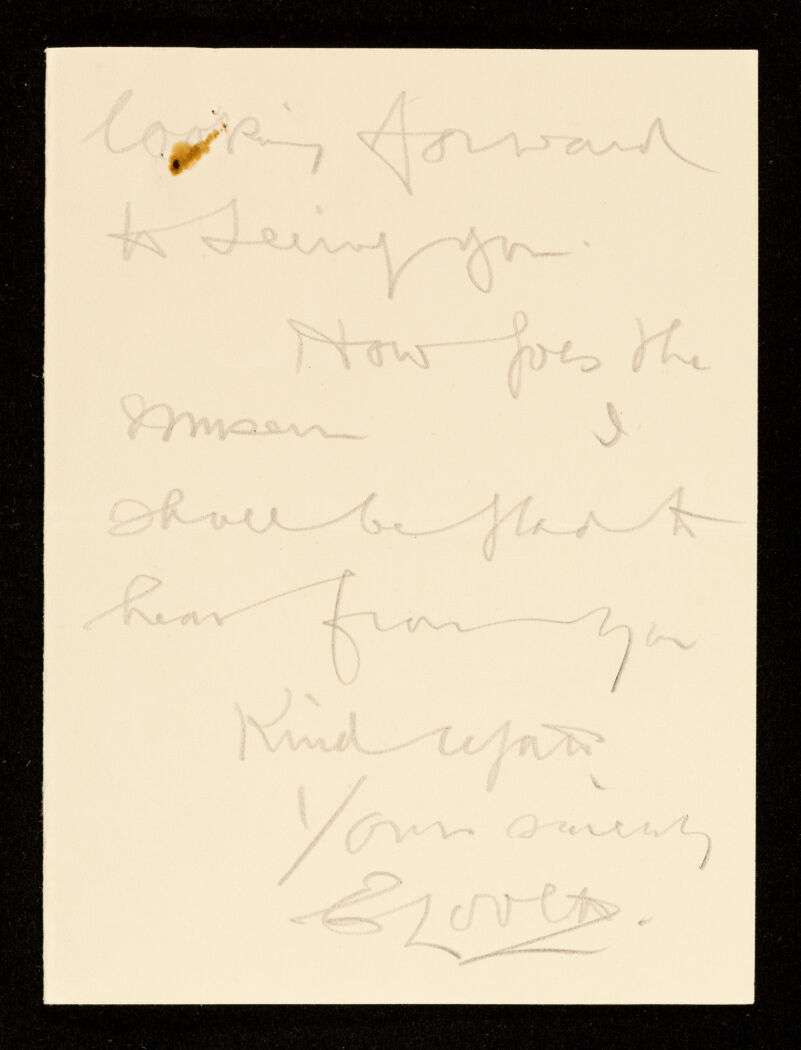 looking forward
to seeing you.
How goes the
museum I
shall be glad to
hear from you
Kind regards
Yours sincerely